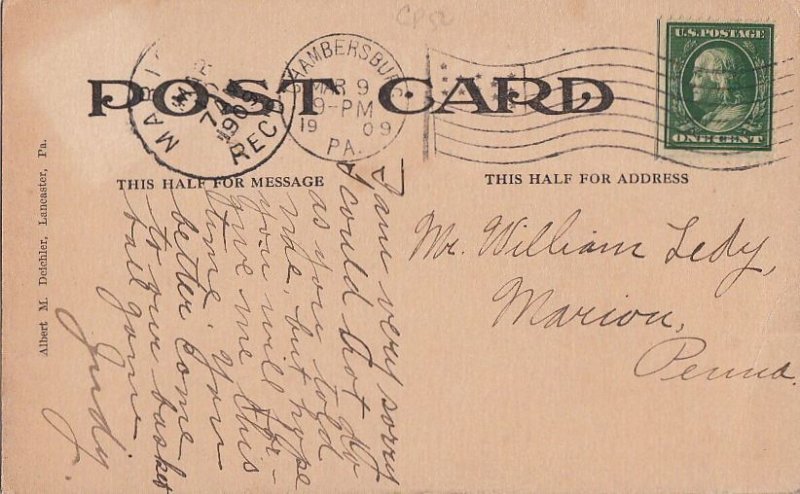 CP52
POST CARD
U.S. POSTAGE
ONE CENT
CHAMBERSBURG
MAR 9
9-PM
1909
PA.
MAR
7 A
1909
REC'D
THIS HALF FOR MESSAGE
THIS HALF FOR ADDRESS
Albert M. Deichler, Lancaster, Pa.
I am very sorry
I could not do
as you told
me, but hope
you will for-
give me this
time. You
better come
to our basket
ball game
Judy.
Mr. William Ledy,
Marion,
Penna.